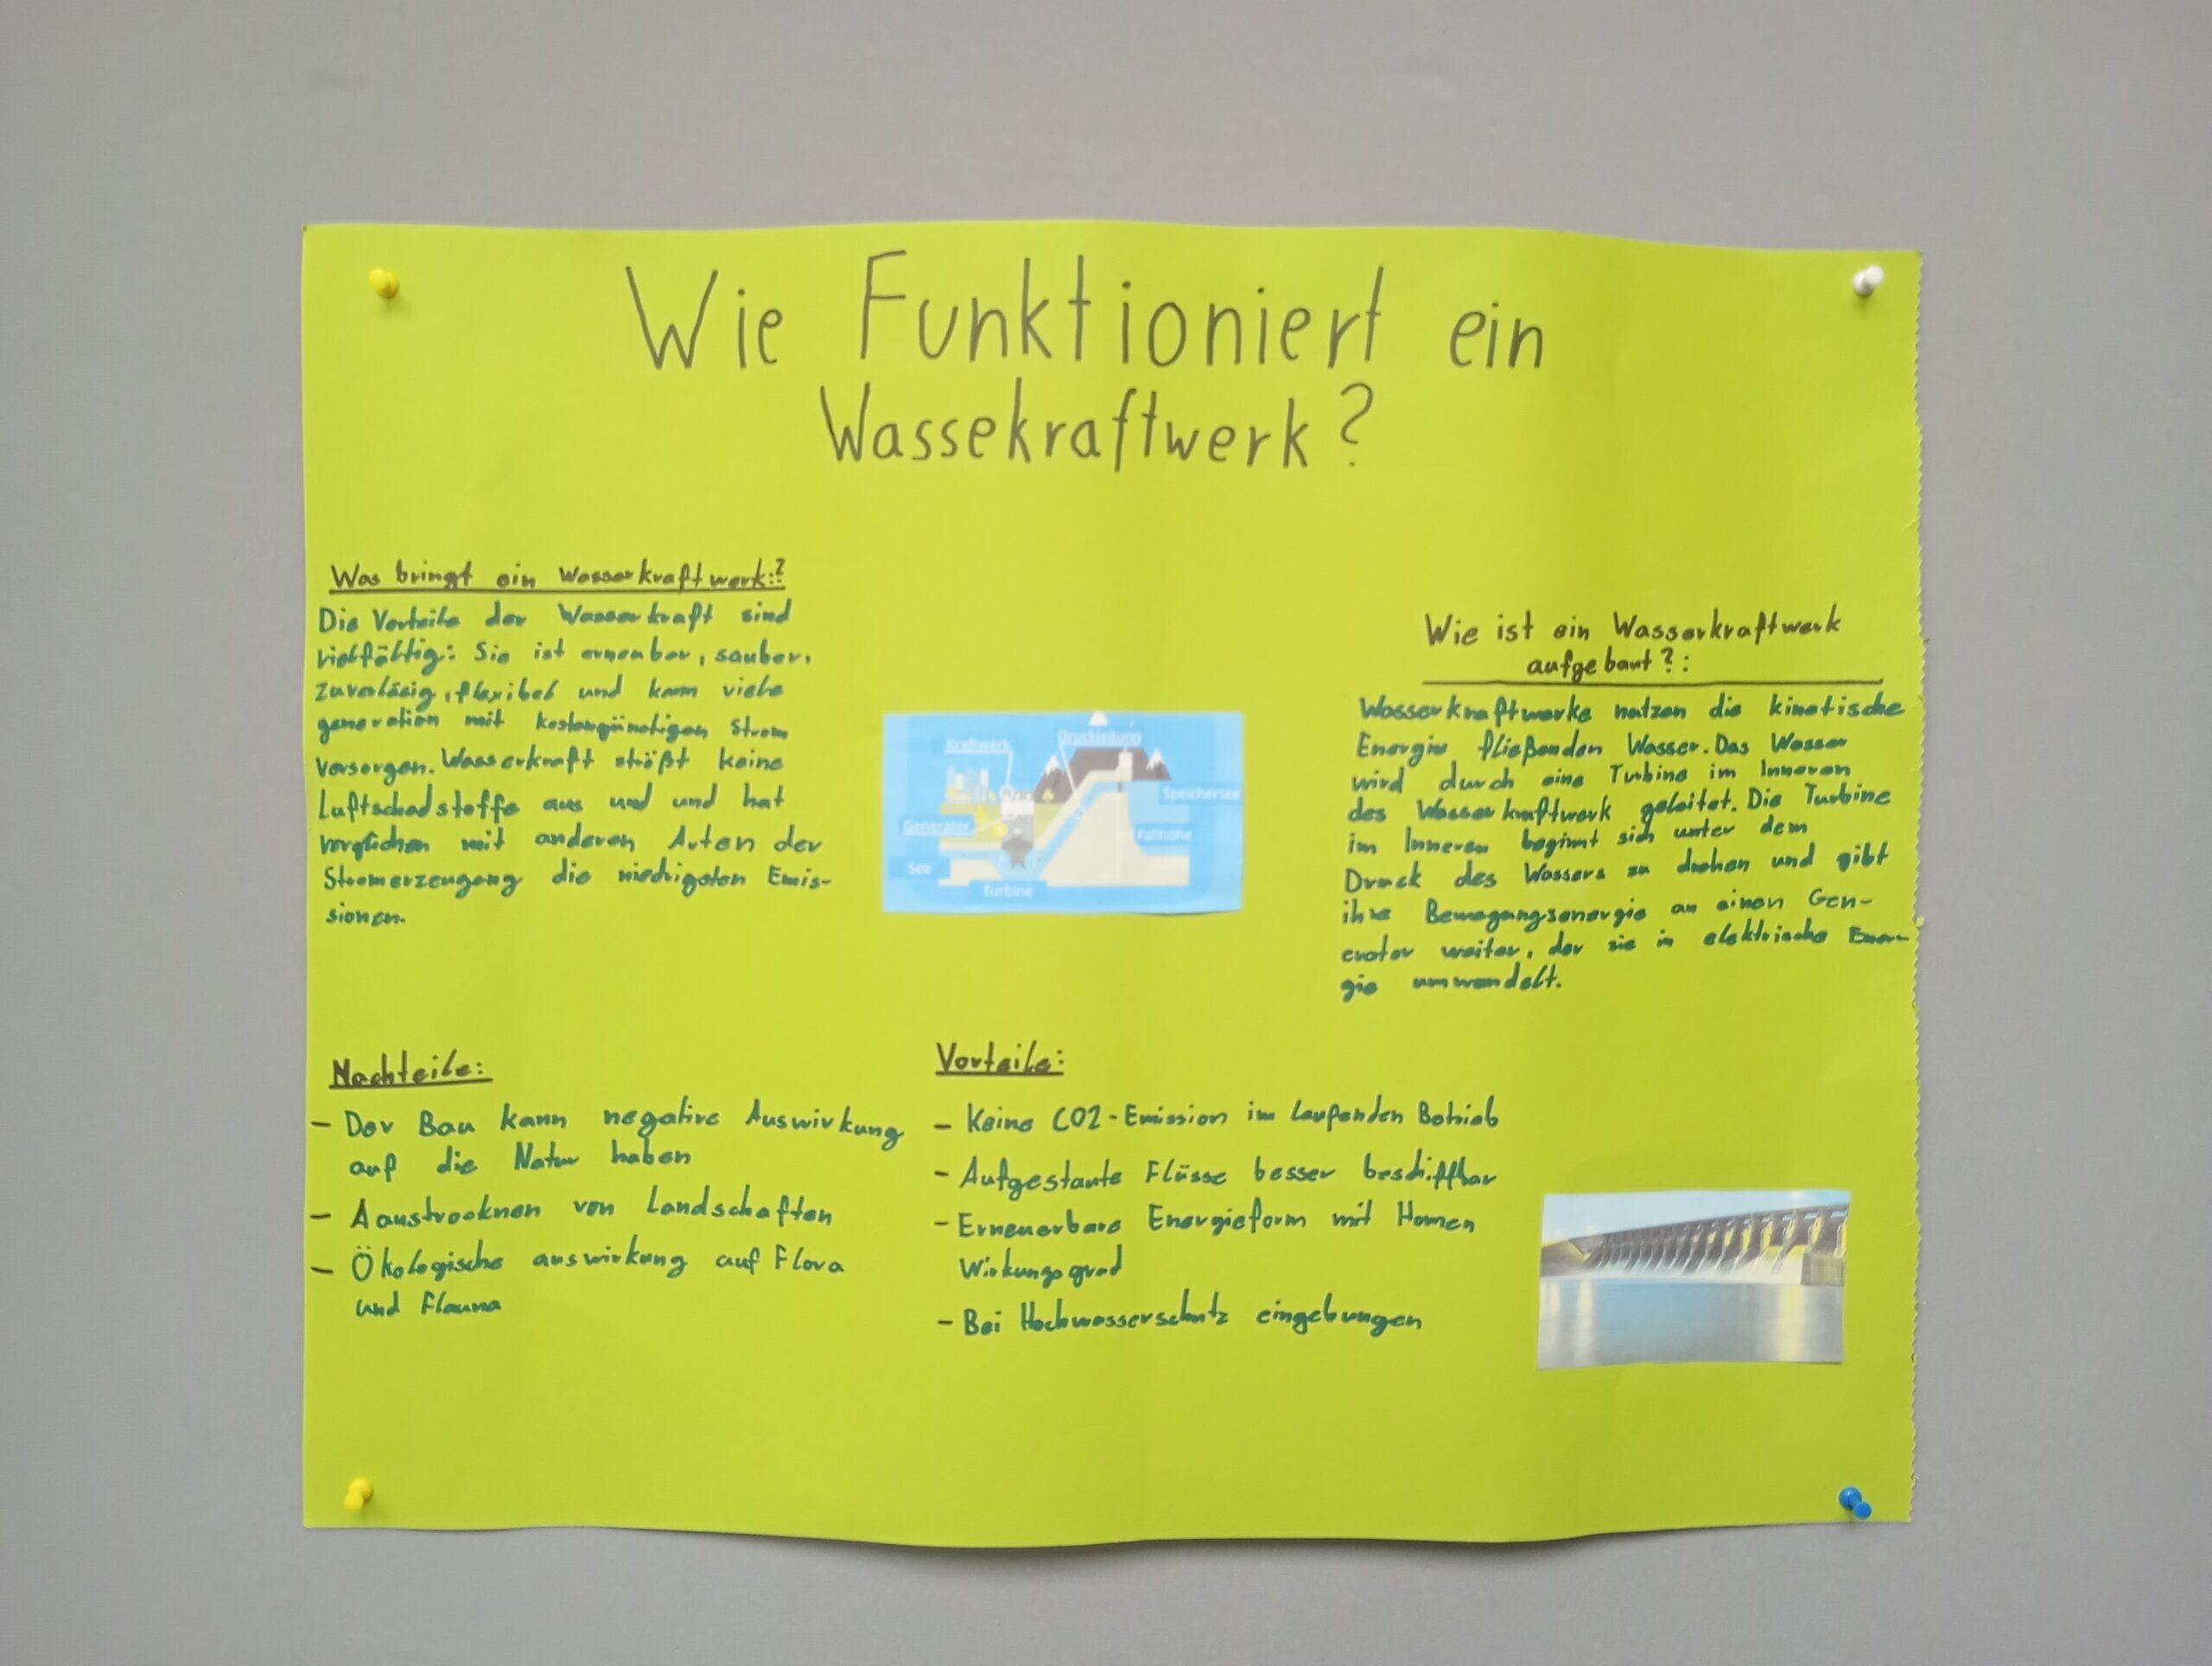 Wie Funktioniert ein
Wassekraftwerk?
Was bringt ein Wasserkraftwerk:?
Die Vorteile der Wasserkraft sind
vielfältig: Sie ist erneubar, sauber,
zuverläsig, flexibel und kann viele
generation mit kostengünstigen Strom
versorgen. Wasserkraft stößt keine
Luftschadstoffe aus und und hat
verglichen mit anderen Arten der
Stromerzeugung die niedrigsten Emis-
sionen.
Kraftwerk
Druckleitung
Speichersee
Generator
Fallhöhe
See
Turbine
Wie ist ein Wasserkraftwerk
aufgebaut?:
Wasserkraftwerke nutzen die kinetische
Energie fließenden Wasser. Das Wasser
wird durch eine Turbine im Inneren
des Wasserkraftwerk geleitet. Die Turbine
im Inneren beginnt sich unter dem
Druck des Wassers zu drehen und gibt
ihre Bewegungsenergie an einen Gen-
erator weiter, der sie in elektrische Ener-
gie umwandelt.
Nachteile:
- Der Bau kann negative Auswirkung
auf die Natur haben
- Aaustrocknen von Landschaften
- Ökologische auswirkung auf Flora
und Flauna
Vorteile:
- Keine CO2-Emission im laufenden Betrieb
- Aufgestaute Flüsse besser beschiffbar
- Erneuerbare Energieform mit
Wirkungsgrad
- Bei Hochwasserschutz eingebungen